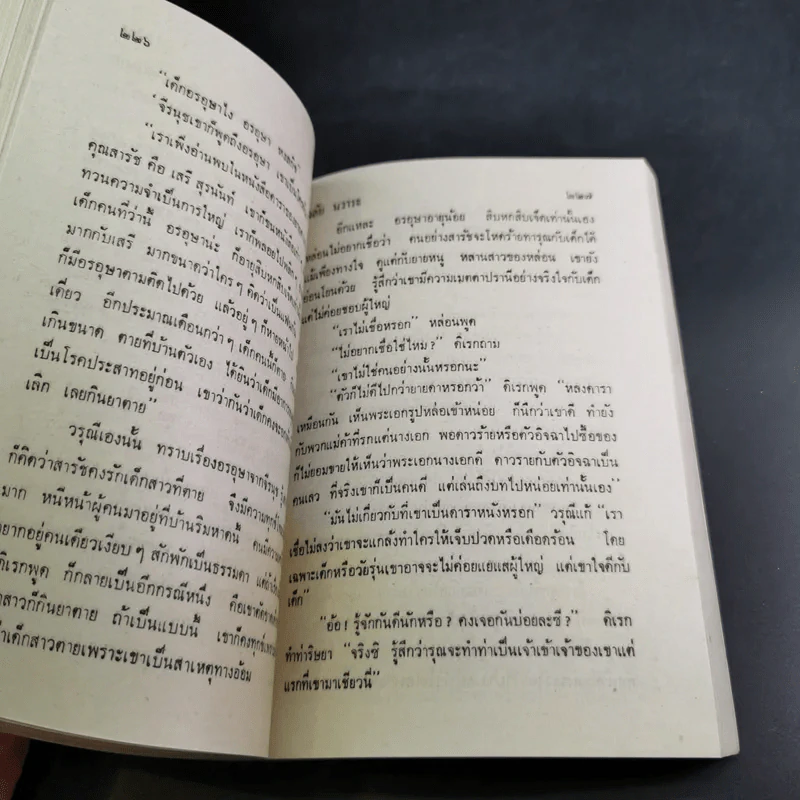 ๒๒๖
“เด็กอรอุษาไง อรอุษา
‘จีรนุชเขาก็พูดถึงอรอุษา เขาเป็น
“เราเพิ่งอ่านพบในหนังสือดารา
คุณสารัช คือ เสรี สุรนันท์ เขาก็ขนหนังสือเก่า
ทวนความจำเป็นการใหญ่ เราก็พลอย
เด็กคนที่ว่านี้ อรอุษานะ ก็อายุสิบหกสิบ
มากกับเสรี มากขนาดว่าใครๆ คิดว่าเป็น
ก็มีอรอุษาตามติดไปด้วย แล้วอยู่ๆ ก็หาย
เดียว อีกประมาณเดือนกว่าๆ เด็กคนนี้ก็ตาย
เกินขนาด ตายที่บ้านตัวเอง ได้ยินว่าเด็กมีอาการ
เป็นโรคประสาทอยู่ก่อน เขาว่ากันว่าเด็กคง
เลิก เลยกินยาตาย”
วรุณีเองนั้น ทราบเรื่องอรอุษาจากจีรนุช
ก็คิดว่าสารัชคงรักเด็กสาวที่ตาย จึงมีความทุกข์
มาก หนีหน้าผู้คนมาอยู่ที่บ้านริมหาดนี้ คนมีความ
อยากอยู่คนเดียวเงียบๆ สักพักเป็นธรรมดา แต่ถ้า
ดิเรกพูด ก็กลายเป็นอีกกรณีหนึ่ง คือเขาตัด
สาวก็กินยาตาย ถ้าเป็นแบบนี้ เขาก็คงทุกข์
เด็กสาวตายเพราะเขาเป็นสาเหตุทางอ้อม
นราวธ
๒๒๗
อีกแหละ อรอุษาอายุน้อย สิบหกสิบเจ็ดเท่านั้นเอง
หล่อนไม่อยากเชื่อว่า คนอย่างสารัชจะโหดร้ายทารุณกับเด็กได้
แม้เพียงทางใจ ดูแต่กับยายหนู หลานสาวของหล่อน เขายัง
อ่อนโยนด้วย รู้สึกว่าเขามีความเมตตาปรานีอย่างจริงใจกับเด็ก
แต่ไม่ค่อยชอบผู้ใหญ่
“เราไม่เชื่อหรอก” หล่อนพูด
“ไม่อยากเชื่อใช่ไหม?” ดิเรกถาม
“เขาไม่ใช่คนอย่างนั้นหรอกนะ”
“ตัวก็ไม่ดีไปกว่ายายดาหรอกว้า” ดิเรกพูด “หลงดารา
เหมือนกัน เห็นพระเอกรูปหล่อเข้าหน่อย ก็นึกว่าเขาดี ทำยัง
กับพวกแม่ค้าที่รักแต่นางเอก พอดาวร้ายหรือตัวอิจฉาไปซื้อของ
ก็ไม่ยอมขายให้เห็นว่าพระเอกนางเอกดี ดาวร้ายกับตัวอิจฉาเป็น
คนเลว ที่จริงเขาก็เป็นคนดี แต่เล่นถึงบทไปหน่อยเท่านั้นเอง”
“มันไม่เกี่ยวกับที่เขาเป็นดาราหนังหรอก” วรุณีแก้ “เรา
เชื่อไม่ลงว่าเขาจะแกล้งทำใครให้เจ็บปวดหรือเดือดร้อน โดย
เฉพาะเด็กหรือวัยรุ่นเขาอาจจะไม่ค่อยแยแสผู้ใหญ่ แต่เขาใจดีกับ
เด็ก”
“อ้อ! รู้จักกันดีนักหรือ? คงเจอกันบ่อยละซี?” ดิเรก
ทำท่าริษยา “จริงซิ รู้สึกว่ารุณจะทำท่าเป็นเจ้าเข้าเจ้าของเขาแต่
แรกที่เขามาเชียวนี่”